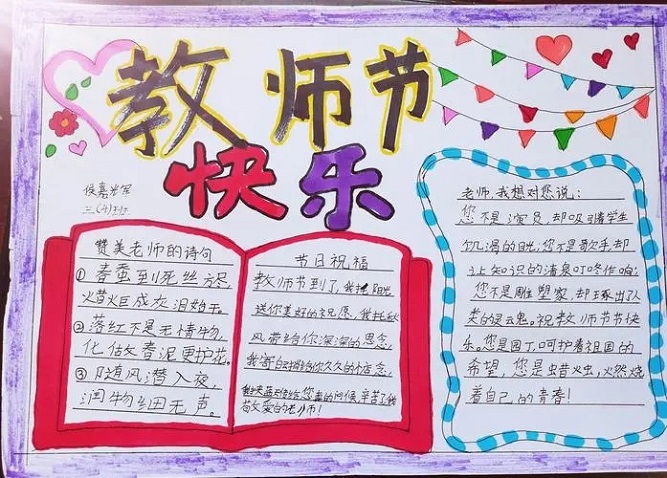 教师节
快乐
三(4)班
赞美老师的诗句
①春蚕到死丝方尽,
火昔火巨成灰泪始干。
②落红不是无情物,
化作春泥更护花。
③随风潜入夜,
润物细无声。
节日祝福
教师节到了,我托阳光
送你美好的祝愿,我托秋
风带给你深深的思念,
我寄白云捎给你久久的怀念,
老师,我想对您说:
您不是演员,却吸引着学生
饥渴的目光;您不是歌手,却
让知识的清泉叮咚作响;
您不是雕塑家,却琢出了人
类的灵魂。祝教师节节快
乐。您是园丁,呵护着祖国的
希望,您是蜡烛,燃烧
着自己的青春!